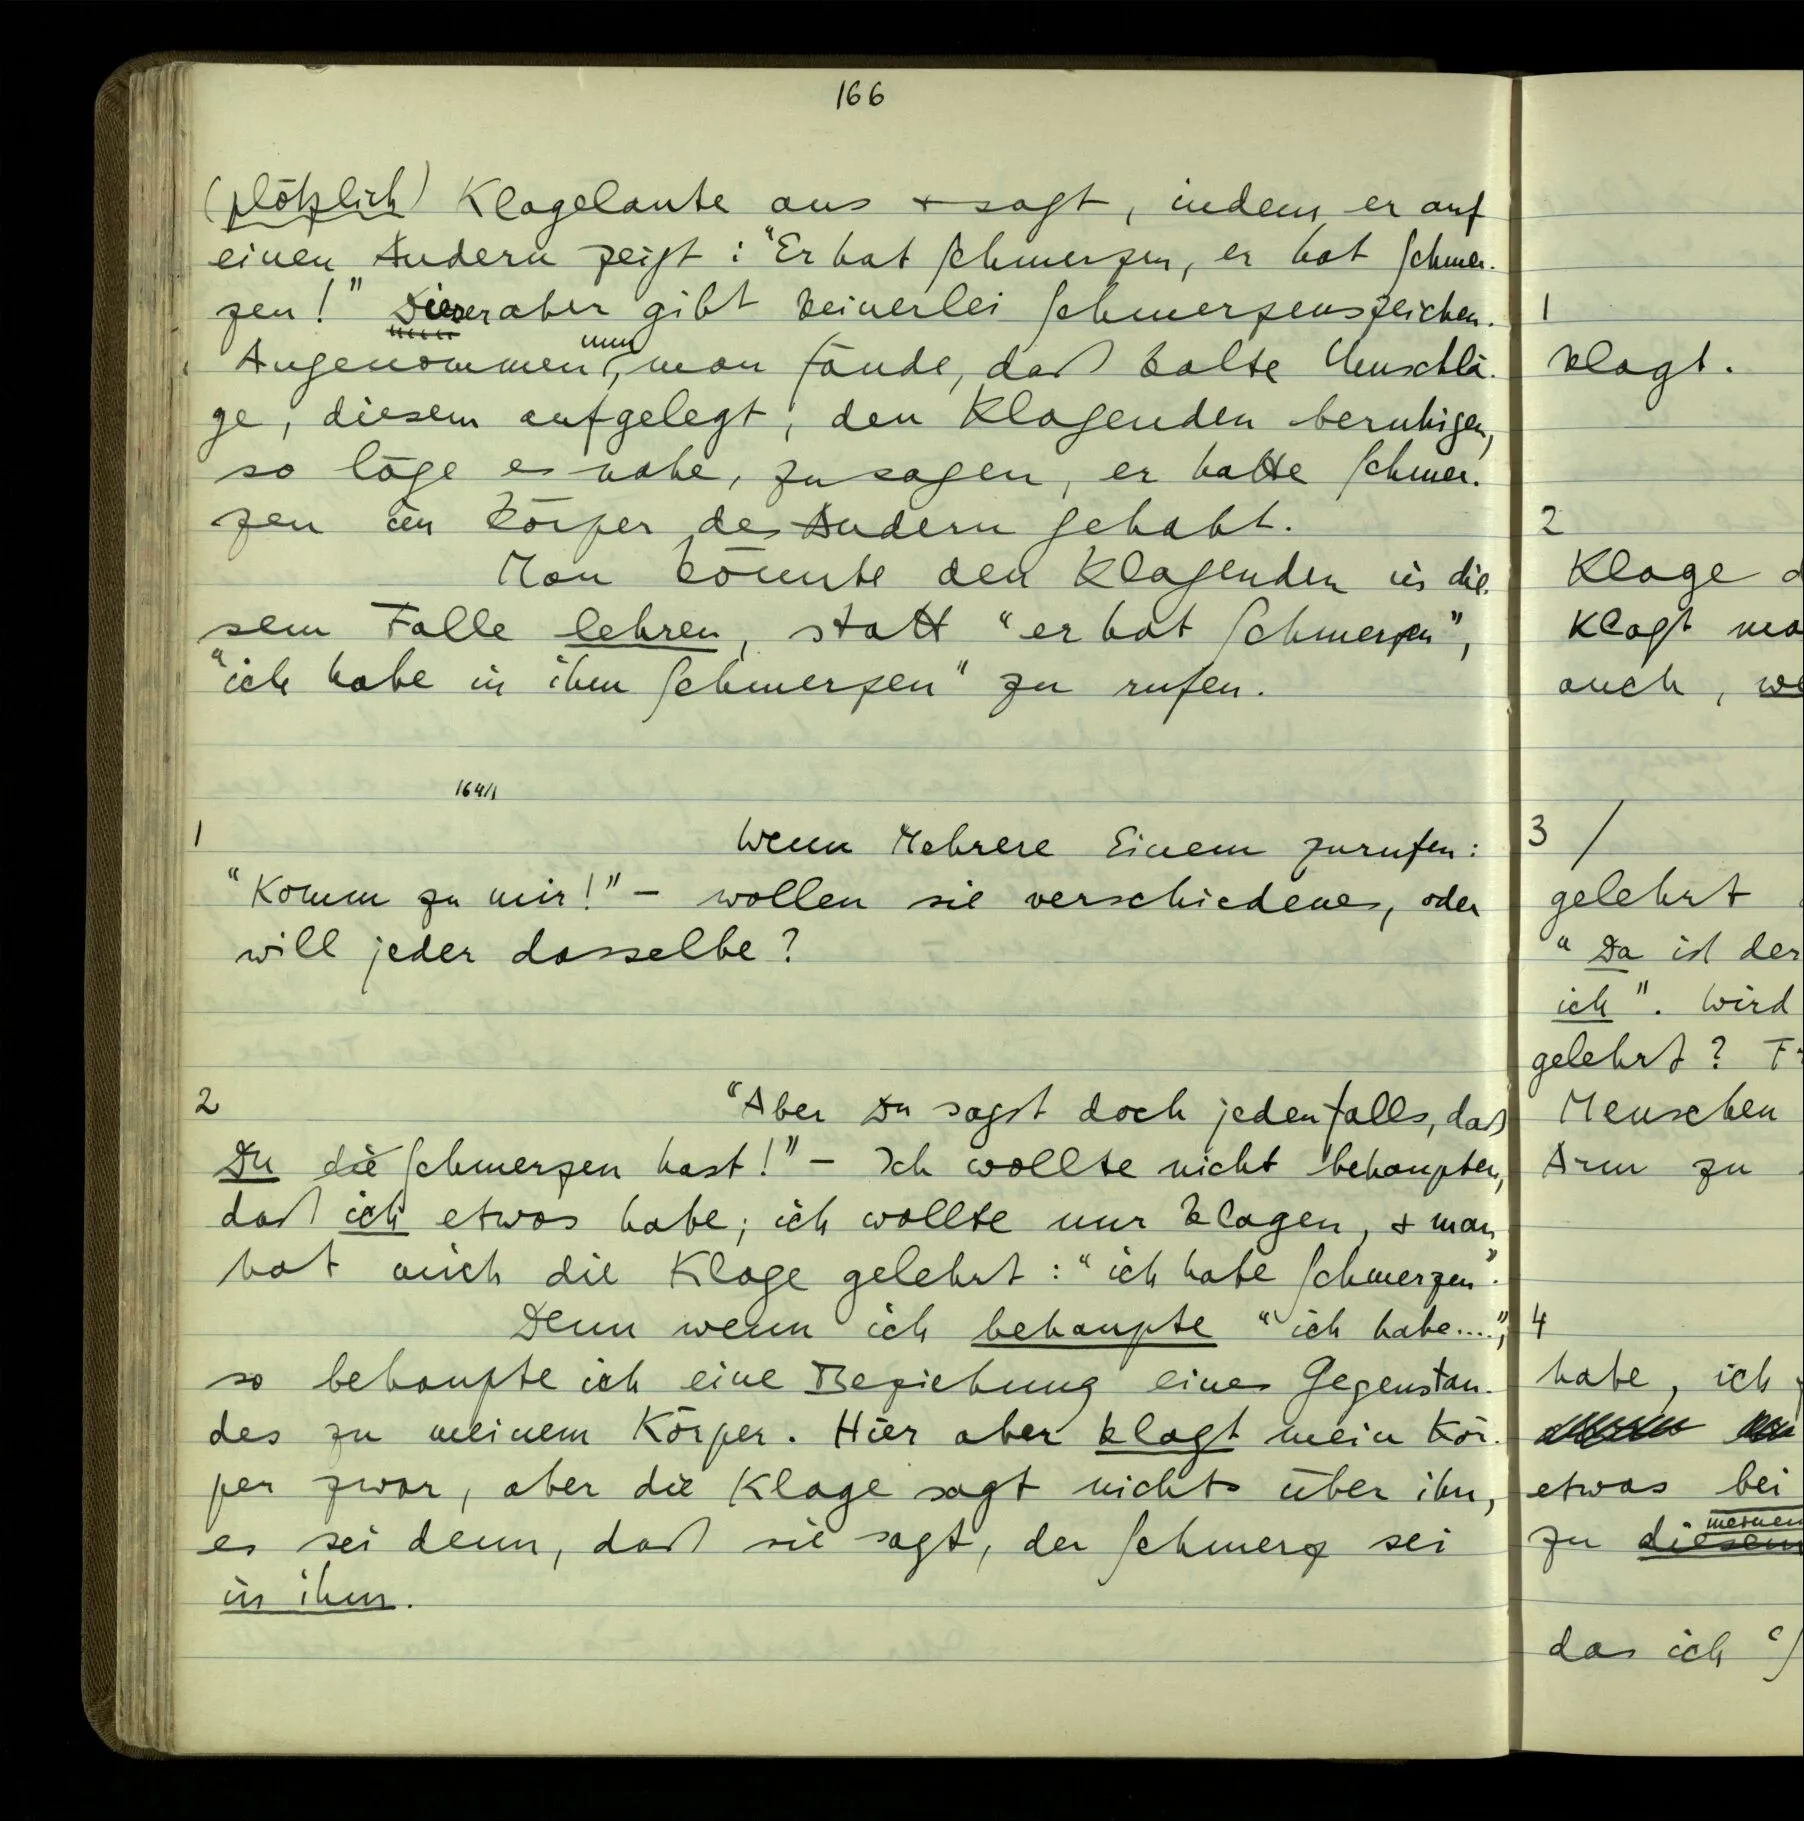 166
(plötzlich) Klagelaute aus + sagt, indem er auf
einen Andern zeigt: "Er hat Schmerzen, er hat Schmer-
zen!" Dieser aber gibt keinerlei Schmerzenszeichen.
nun
Angenommen, man fände, daß kalte Umschlä-
ge, diesem aufgelegt, den Klagenden beruhigen,
so läge es nahe, zu sagen, er hatte Schmer-
zen im Körper des Andern gehabt.
Man könnte den Klagenden in die-
sem Falle lehren, statt "er hat Schmerzen",
"ich habe in ihm Schmerzen" zu rufen.
164/1
1 Wenn Mehrere Einem zurufen:
"Komm zu mir!" – wollen sie verschiedenes, oder
will jeder dasselbe?
2 "Aber Du sagst doch jedenfalls, daß
Du die Schmerzen hast!" – Ich wollte nicht behaupten,
daß ich etwas habe; ich wollte nur klagen, + man
hat mich die Klage gelehrt: "ich habe Schmerzen".
Denn wenn ich behaupte "ich habe....",
so behaupte ich eine Beziehung eines Gegenstan-
des zu meinem Körper. Hier aber klagt mein Kör-
per zwar, aber die Klage sagt nichts über ihn,
es sei denn, daß sie sagt, der Schmerz sei
in ihm.
1
klagt.
2
Klage
Klagt
auch,
3 /
gelehrt
"Da ist der
ich". Wird
gelehrt?
Menschen
Arm zu
4
habe, ich
etwas bei
meinem
zu diesem
das ich